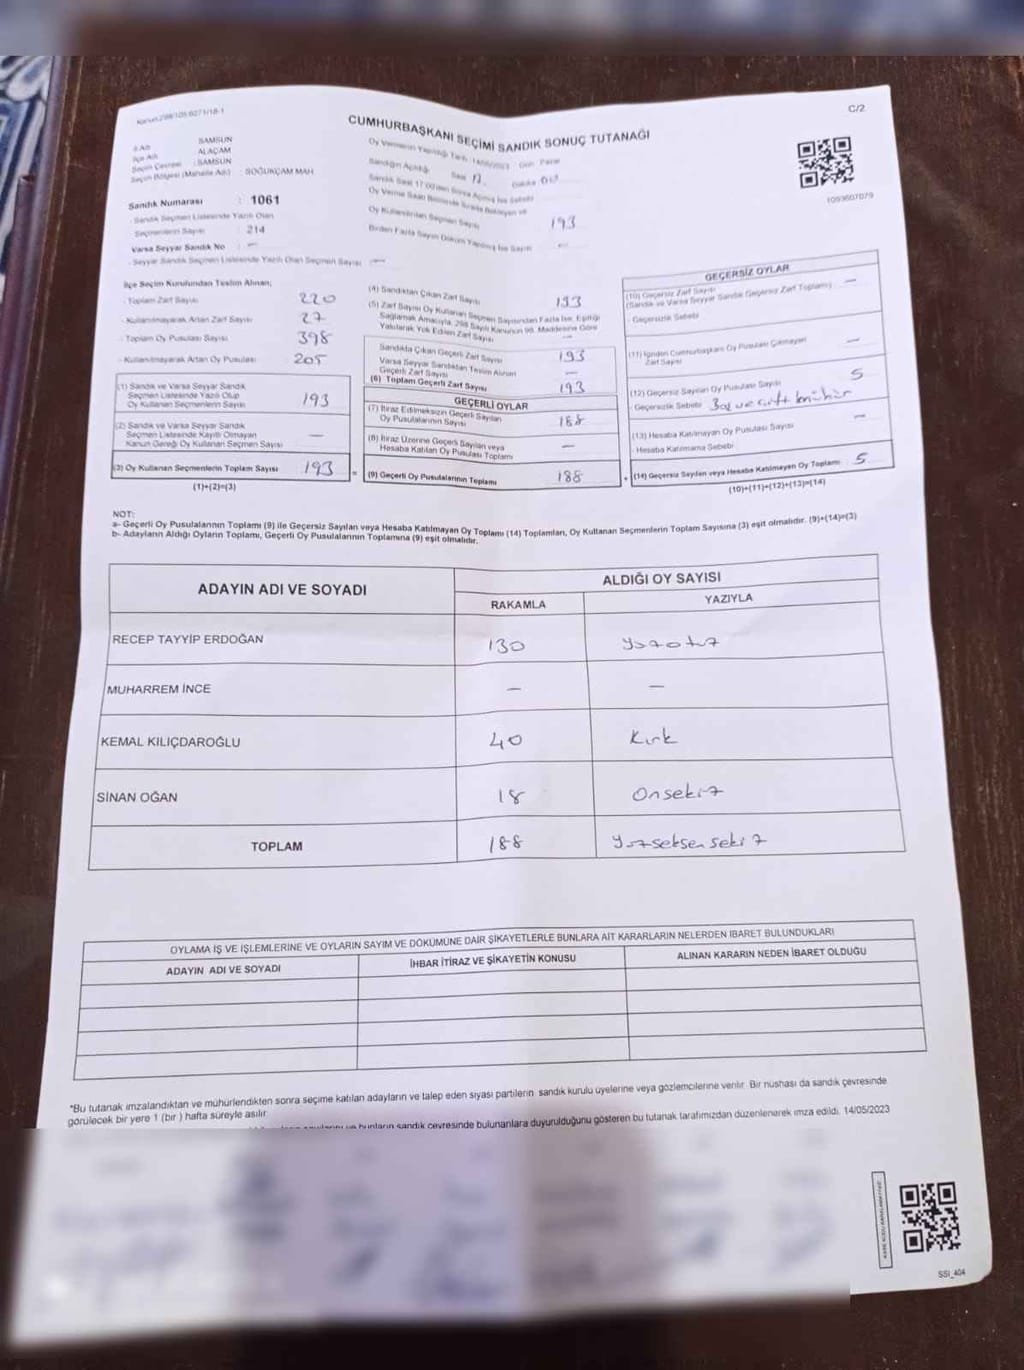 Kanun 298/105:6271/18-1
C/2
CUMHURBAŞKANI SEÇİMİ SANDIK SONUÇ TUTANAĞI
İl Adı SAMSUN
İlçe Adı ALAÇAM
Seçim Çevresi : SAMSUN
Seçim Bölgesi (Mahalle Adı) : SOĞUKÇAM MAH
Sandık Numarası : 1061
- Sandık Seçmen Listesinde Yazılı Olan
Seçmenlerin Sayısı : 214
Varsa Seyyar Sandık No : —
- Seyyar Sandık Seçmen Listesinde Yazılı Olan Seçmen Sayısı —
Oy Vermenin Yapıldığı Tarih : 14/05/2023 Gün Pazar
Sandığın Açıldığı Saat Dakika
Oy Kullandırılan Seçmen Sayısı 193
Birden Fazla Sayım Döküm Yapılmış İse Sayısı —
İlçe Seçim Kurulundan Teslim Alınan;
- Toplam Zarf Sayısı 220
- Kullanılmayarak Artan Zarf Sayısı 27
- Toplam Oy Pusulası Sayısı 398
- Kullanılmayarak Artan Oy Pusulası 205
(1) Sandık ve Varsa Seyyar Sandık
Seçmen Listesinde Yazılı Olup
Oy Kullanan Seçmenlerin Sayısı 193
(2) Sandık ve Varsa Seyyar Sandık
Seçmen Listesinde Kayıtlı Olmayan
Kanun Gereği Oy Kullanan Seçmen Sayısı —
(3) Oy Kullanan Seçmenlerin Toplam Sayısı 193
(1)+(2)=(3)
(4) Sandıktan Çıkan Zarf Sayısı 193
(5) Zarf Sayısı Oy Kullanan Seçmen Sayısından Fazla İse, Eşitliği
Sağlamak Amacıyla, 298 Sayılı Kanunun 98. Maddesine Göre
Yakılarak Yok Edilen Zarf Sayısı —
Sandıkta Çıkan Geçerli Zarf Sayısı 193
Varsa Seyyar Sandıktan Teslim Alınan
Geçerli Zarf Sayısı —
(6) Toplam Geçerli Zarf Sayısı 193
GEÇERLİ OYLAR
(7) İtiraz Edilmeksizin Geçerli Sayılan
Oy Pusulalarının Sayısı 188
(8) İtiraz Üzerine Geçerli Sayılan veya
Hesaba Katılan Oy Pusulası Toplamı —
= (9) Geçerli Oy Pusulalarının Toplamı 188
1093607079
GEÇERSİZ OYLAR
(10) Geçersiz Zarf Sayısı
(Sandık ve Varsa Seyyar Sandık Geçersiz Zarf Toplamı) —
- Geçersizlik Sebebi
(11) İçinden Cumhurbaşkanı Oy Pusulası Çıkmayan
Zarf Sayısı —
(12) Geçersiz Sayılan Oy Pusulası Sayısı 5
- Geçersizlik Sebebi Boş ve çift mühür
(13) Hesaba Katılmayan Oy Pusulası Sayısı —
- Hesaba Katılmama Sebebi
+ (14) Geçersiz Sayılan veya Hesaba Katılmayan Oy Toplamı 5
(10)+(11)+(12)+(13)=(14)
NOT:
a- Geçerli Oy Pusulalarının Toplamı (9) ile Geçersiz Sayılan veya Hesaba Katılmayan Oy Toplamı (14) Toplamları, Oy Kullanan Seçmenlerin Toplam Sayısına (3) eşit olmalıdır. (9)+(14)=(3)
b- Adayların Aldığı Oyların Toplamı, Geçerli Oy Pusulalarının Toplamına (9) eşit olmalıdır.
ADAYIN ADI VE SOYADI
ALDIĞI OY SAYISI
RAKAMLA YAZIYLA
RECEP TAYYİP ERDOĞAN 130 yüzotuz
MUHARREM İNCE — —
KEMAL KILIÇDAROĞLU 40 Kırk
SİNAN OĞAN 18 Onsekiz
TOPLAM 188 yüzseksensekiz
OYLAMA İŞ VE İŞLEMLERİNE VE OYLARIN SAYIM VE DÖKÜMÜNE DAİR ŞİKAYETLERLE BUNLARA AİT KARARLARIN NELERDEN İBARET BULUNDUKLARI
ADAYIN ADI VE SOYADI İHBAR İTİRAZ VE ŞİKAYETİN KONUSU ALINAN KARARIN NEDEN İBARET OLDUĞU
*Bu tutanak imzalandıktan ve mühürlendikten sonra seçime katılan adayların ve talep eden siyasi partilerin sandık kurulu üyelerine veya gözlemcilerine verilir. Bir nüshası da sandık çevresinde
görülecek bir yere 1 (bir) hafta süreyle asılır
ve bunların sandık çevresinde bulunanlara duyurulduğunu gösteren bu tutanak tarafımızdan düzenlenerek imza edildi. 14/05/2023
SSI_404